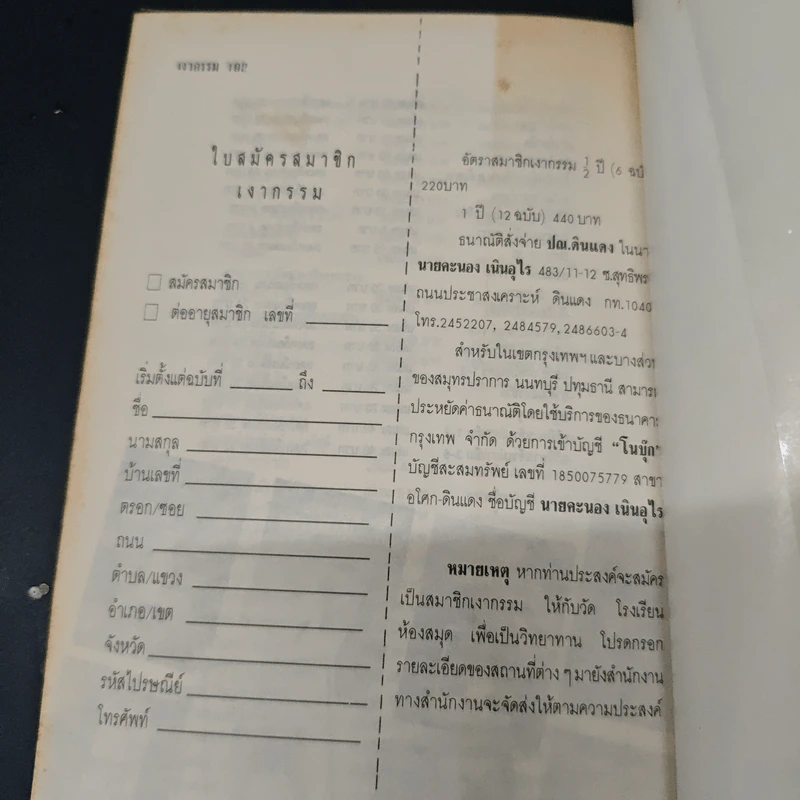 เงากรรม 102
ใบสมัครสมาชิก
เงากรรม
สมัครสมาชิก
ต่ออายุสมาชิก เลขที่
เริ่มตั้งแต่ฉบับที่ ถึง
ชื่อ
นามสกุล
บ้านเลขที่
ตรอก/ซอย
ถนน
ตำบล/แขวง
อำเภอ/เขต
จังหวัด
รหัสไปรษณีย์
โทรศัพท์
อัตราสมาชิกเงากรรม 1/2 ปี (6
220บาท
1 ปี (12 ฉบับ) 440 บาท
ธนาณัติสั่งจ่าย ปณ.ดินแดง ในนา
นายคะนอง เนินอุไร 483/11-12 ซ.สุทธิพร
ถนนประชาสงเคราะห์ ดินแดง กท.1040
โทร.2452207, 2484579,2486603-4
สำหรับในเขตกรุงเทพฯ และบางส่ว
ของสมุทรปราการ นนทบุรี ปทุมธานี สามาร
ประหยัดค่าธนาณัติโดยใช้บริการของธนาคา
กรุงเทพ จำกัด ด้วยการเข้าบัญชี "โนบุ๊ก"
บัญชีสะสมทรัพย์ เลขที่ 1850075779 สาขา
อโศก-ดินแดง ชื่อบัญชี นายคะนอง เนินอุไร
หมายเหตุ หากท่านประสงค์จะสมัคร
เป็นสมาชิกเงากรรม ให้กับวัด โรงเรียน
ห้องสมุด เพื่อเป็นวิทยาทาน โปรดกรอก
รายละเอียดของสถานที่ต่าง ๆ มายังสำนักงาน
ทางสำนักงานจะจัดส่งให้ตามความประสงค์